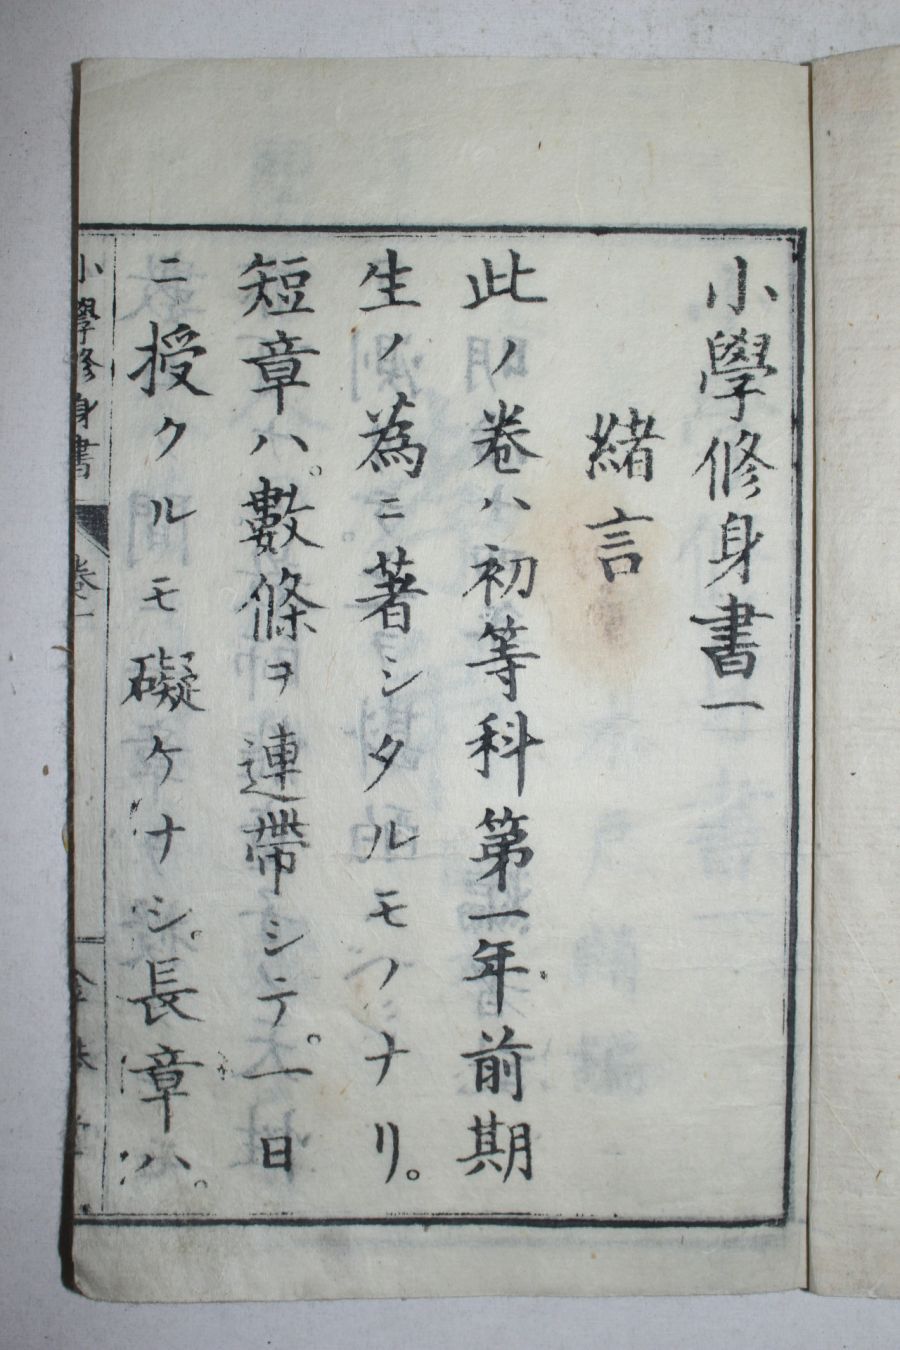 小學修身書一
緒言
此ノ卷ハ初等科第一年前期
生ノ為ニ著シタルモノナリ。
短章ハ。數條ヲ連帶シテ。一日
ニ授クルモ礙ケナシ。長章ハ。
小學修身書
卷一